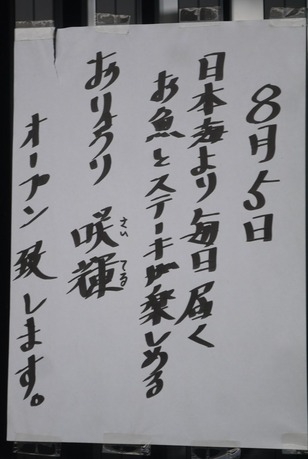 8月5日
日本海より毎日届く
お魚とステーキが楽しめる
おりょうり 咲輝
さい
てる
オープン致します。